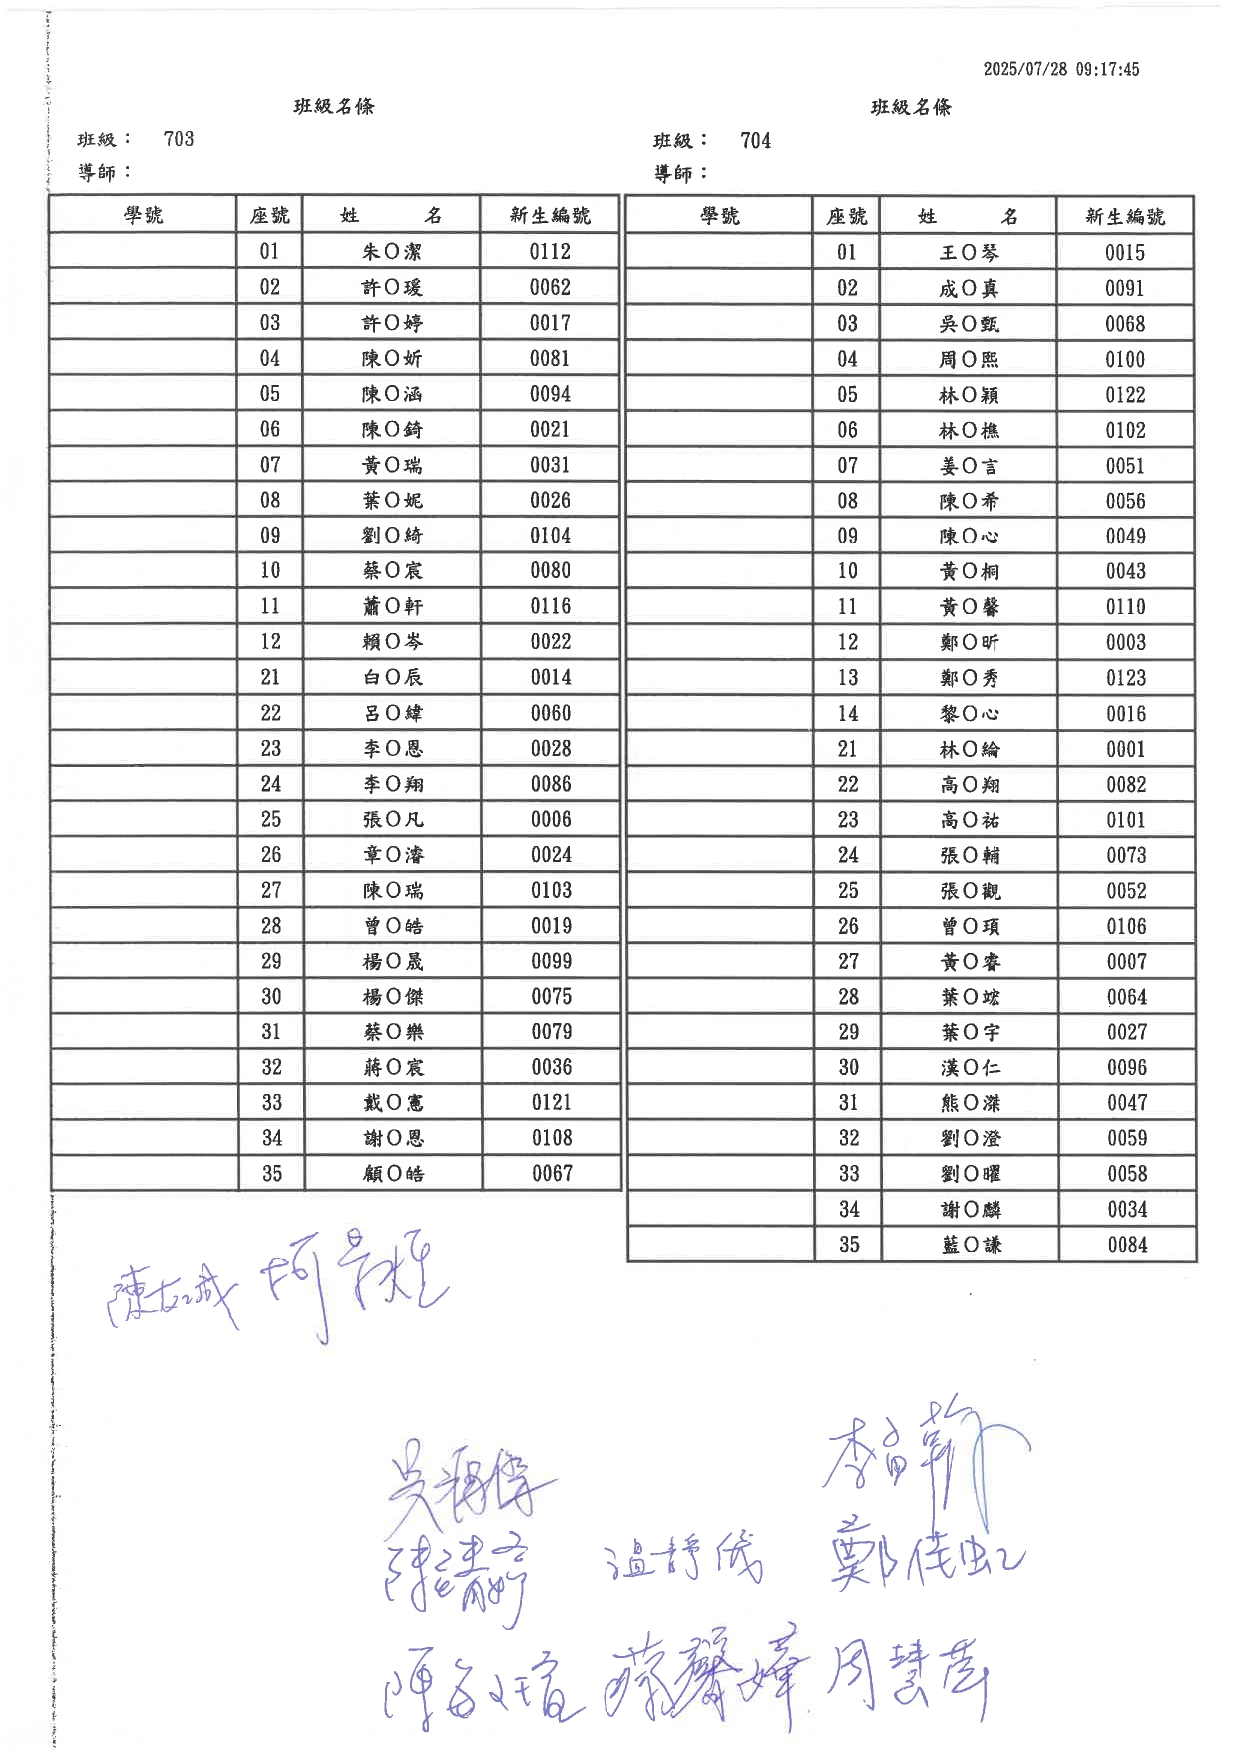 2025/07/28 09:17:45
班級名條
班級： 703
導師：
學號 座號 姓 名 新生編號
01 朱O潔 0112
02 許O瑗 0062
03 許O婷 0017
04 陳O妡 0081
05 陳O涵 0094
06 陳O錡 0021
07 黃O瑞 0031
08 葉O妮 0026
09 劉O綺 0104
10 蔡O宸 0080
11 蕭O軒 0116
12 賴O岑 0022
21 白O辰 0014
22 呂O緯 0060
23 李O恩 0028
24 李O翔 0086
25 張O凡 0006
26 章O濬 0024
27 陳O瑞 0103
28 曾O皓 0019
29 楊O晟 0099
30 楊O傑 0075
31 蔡O樂 0079
32 蔣O宸 0036
33 戴O憲 0121
34 謝O恩 0108
35 顧O皓 0067
班級名條
班級： 704
導師：
學號 座號 姓 名 新生編號
01 王O琴 0015
02 成O真 0091
03 吳O甄 0068
04 周O熙 0100
05 林O穎 0122
06 林O樵 0102
07 姜O言 0051
08 陳O希 0056
09 陳O心 0049
10 黃O桐 0043
11 黃O馨 0110
12 鄭O昕 0003
13 鄭O秀 0123
14 黎O心 0016
21 林O綸 0001
22 高O翔 0082
23 高O祐 0101
24 張O輔 0073
25 張O觀 0052
26 曾O頊 0106
27 黃O睿 0007
28 葉O竤 0064
29 葉O宇 0027
30 漢O仁 0096
31 熊O滐 0047
32 劉O澄 0059
33 劉O曜 0058
34 謝O麟 0034
35 藍O謙 0084
溫靜儀